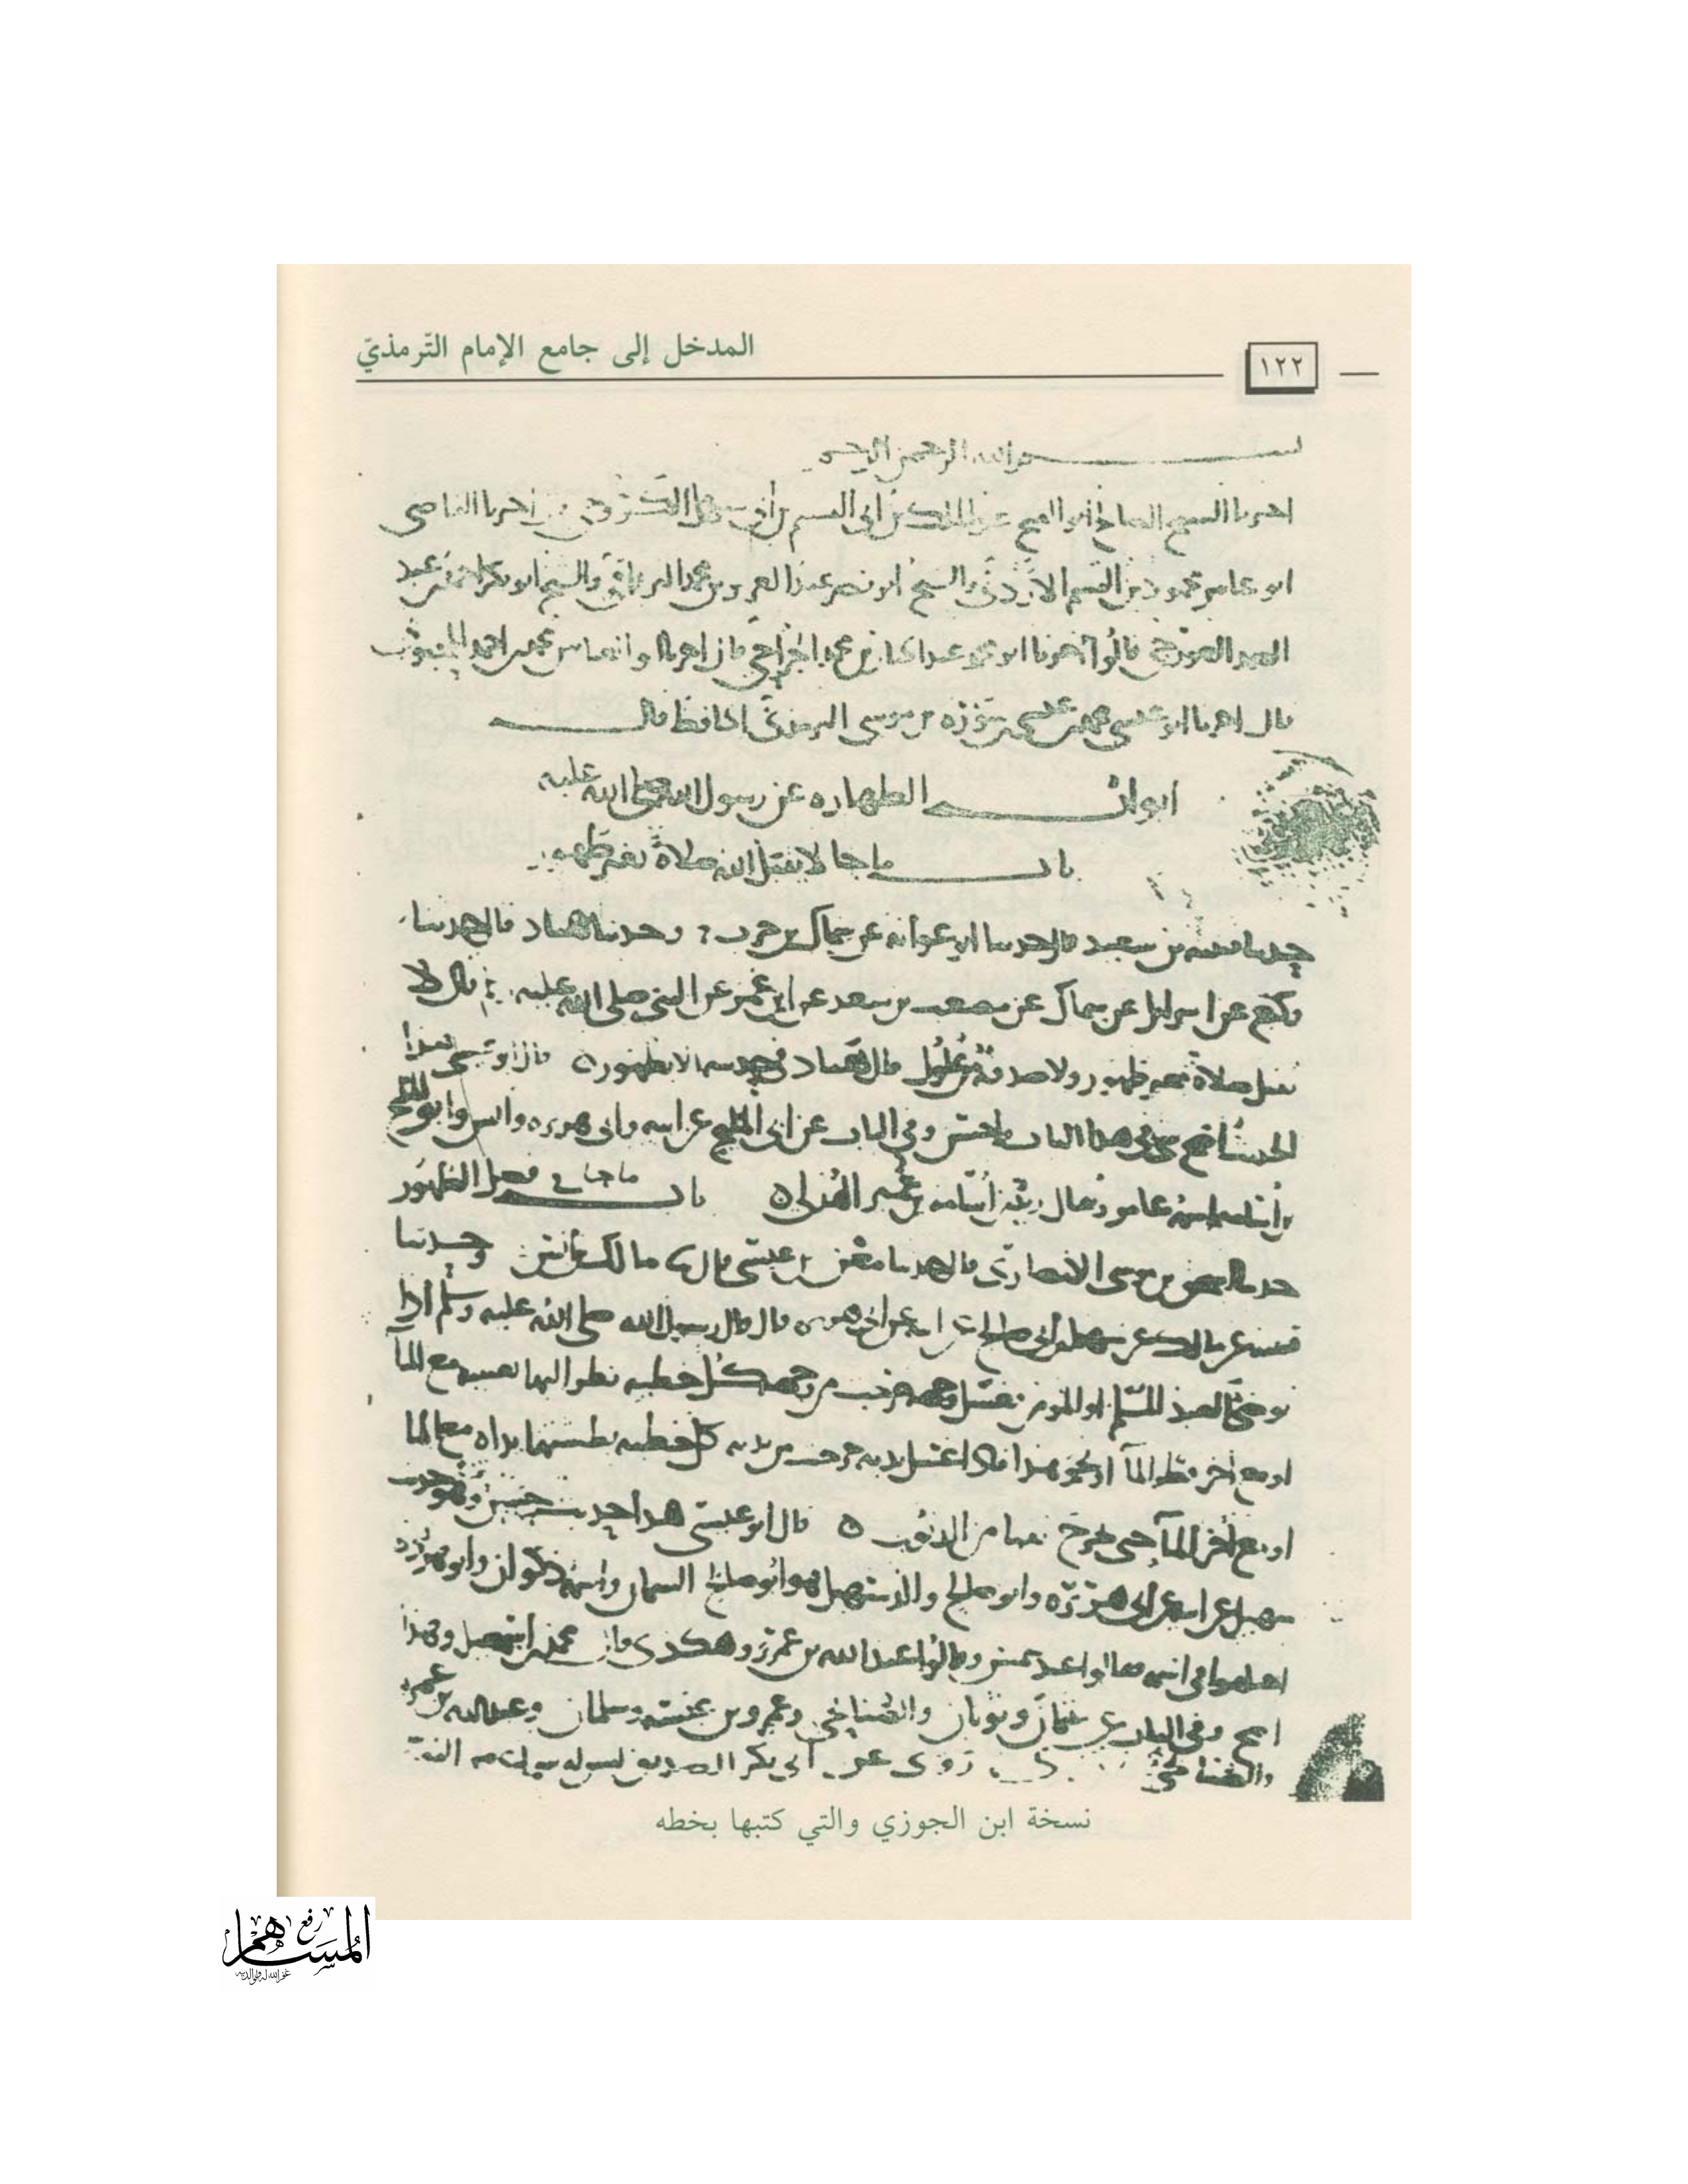 المدخل إلى جامع الإمام التّرمذيّ
١٢٢
بسم الله الرحمن الرحيم
اخبرنا الشيخ الصالح ابو الفتح عبد الملك بن ابى القسم بن ابى سهل الكروخي اخبرنا القاضى
ابو عامر محمود بن القسم الازدي والشيخ ابو نصر عبد العزيز بن محمد الترياقي والشيخ ابو بكر احمد بن عبد
الصمد الغورجي قالوا اخبرنا ابو محمد عبد الجبار بن محمد الجراحي قال اخبرنا ابو العباس محمد بن احمد المحبوبي
قال اخبرنا ابو عيسى محمد بن عيسى بن سورة بن موسى الترمذي الحافظ قال
ابواب الطهاره عن رسول الله صلى الله عليه
باب ما جا لا يقبل الله صلاة بغير طهور
حدثنا قتيبه بن سعيد قال حدثنا ابو عوانه عن سماك بن حرب ح وحدثنا هناد قال حدثنا
وكيع عن اسرايل عن سماك عن مصعب بن سعد عن ابن عمر عن النبي صلى الله عليه قال لا
تقبل صلاة بغير طهور ولا صدقة من غلول قال هناد في حديثه الا بطهور ه قال ابو عيسى هذا
الحديث اصح شي في هذا الباب واحسن وفي الباب عن ابي المليح عن ابيه وابي هريره وانس وابو المليح
بن اسامه اسمه عامر ويقال زيد بن اسامه بن عمير الهذلي ه باب ما جا في فضل الطهور
حدثنا اسحق بن موسى الانصاري قال حدثنا معن بن عيسى قال ثنا مالك بن انس وحدثنا
قتيبه عن مالك عن سهيل بن ابي صالح عن ابيه عن ابي هريره قال قال رسول الله صلى الله عليه وسلم اذا
توضا العبد المسلم او المومن فغسل وجهه خرجت من وجهه كل خطيه نظر اليها بعينيه مع المآ
او مع اخر قطر المآ او نحو هذا فاذا غسل يديه خرجت من يديه كل خطيه بطشتها يداه مع الما
او مع اخر قطر المآ حتى يخرج نقيا من الذنوب ه قال ابو عيسى هذا حديث حسن وهو حديث
سهيل عن ابيه عن ابي هريره وابو صالح والد سهيل هو ابو صالح السمان واسمه ذكوان وابو هريره
اختلفوا في اسمه فقالوا عبد شمس وقالوا عبد الله بن عمرو وهكذى قال محمد بن اسمعيل وهذا
اصح وفي الباب عن عثمان وثوبان والصنابحي وعمرو بن عبسه وسلمان وعبد الله بن عمرو
والصنابحي روى عن ابي بكر الصديق ليس له سماع من النبي
نسخة ابن الجوزي والتي كتبها بخطه
رفع
المساهم
غفر الله له ولوالديه